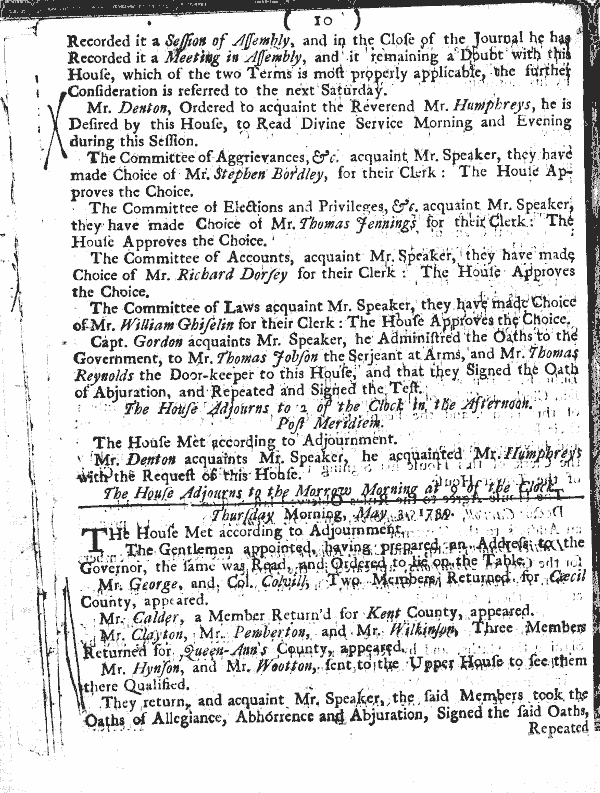 ( 10 )
Recorded it a Seſſion of Aſſembly, and in the Cloſe of the Journal he has
Recorded it a Meeting in Aſſembly, and it remaining a Doubt with this
Houſe, which of the two Terms is moſt properly applicable, the further
Conſideration is referred to the next Saturday.
Mr. Denton, Ordered to acquaint the Reverend Mr. Humphreys, he is
Deſired by this Houſe, to Read Divine Service Morning and Evening
during this Seſſion.
The Committee of Aggrievances, &c. acquaint Mr. Speaker, they have
made Choice of Mr. Stephen Bordley, for their Clerk : The Houſe Ap-
proves the Choice.
The Committee of Elections and Privileges, &c. acquaint Mr. Speaker,
they have made Choice of Mr. Thomas Jennings for their Clerk : The
Houſe Approves the Choice.
The Committee of Accounts, acquaint Mr. Speaker, they have made
Choice of Mr. Richard Dorſey for their Clerk : The Houſe Approves
the Choice.
The Committee of Laws acquaint Mr. Speaker, they have made Choice
of Mr. William Ghiſelin for their Clerk : The Houſe Approves the Choice.
Capt. Gordon acquaints Mr. Speaker, he Adminiſtred the Oaths to the
Government, to Mr. Thomas Jobſon the Serjeant at Arms, and Mr. Thomas
Reynolds the Door-keeper to this Houſe, and that they Signed the Oath
of Abjuration, and Repeated and Signed the Teſt.
The Houſe Adjourns to 2 of the Clock in the Afternoon.
Poſt Meridiem.
The Houſe Met according to Adjournment.
Mr. Denton acquaints Mr. Speaker, he acquainted Mr. Humphreys
with the Requeſt of this Houſe.
The Houſe Adjourns to the Morrow Morning at 9 of the Clock.
Thurſday Morning, May
THe Houſe Met according to Adjournment.
The Gentlemen appointed, having prepared an Addreſs to the
Governor, the ſame was Read, and Ordered to lie on the Table.
Mr. George, and Col. Colvill, Two Members Returned for Cæcil
County, appeared.
Mr. Calder, a Member Return'd for Kent County, appeared.
Mr. Clayton, Mr. Pemberton, and Mr. Wilkinſon, Three Members
Returned for Queen-Ann's County, appeared.
Mr. Hynſon, and Mr. Wootton, ſent to the Upper Houſe to ſee them
there Qualified.
They return, and acquaint Mr. Speaker, the ſaid Members took the
Oaths of Allegiance, Abhorrence and Abjuration, Signed the ſaid Oaths,
Repeated